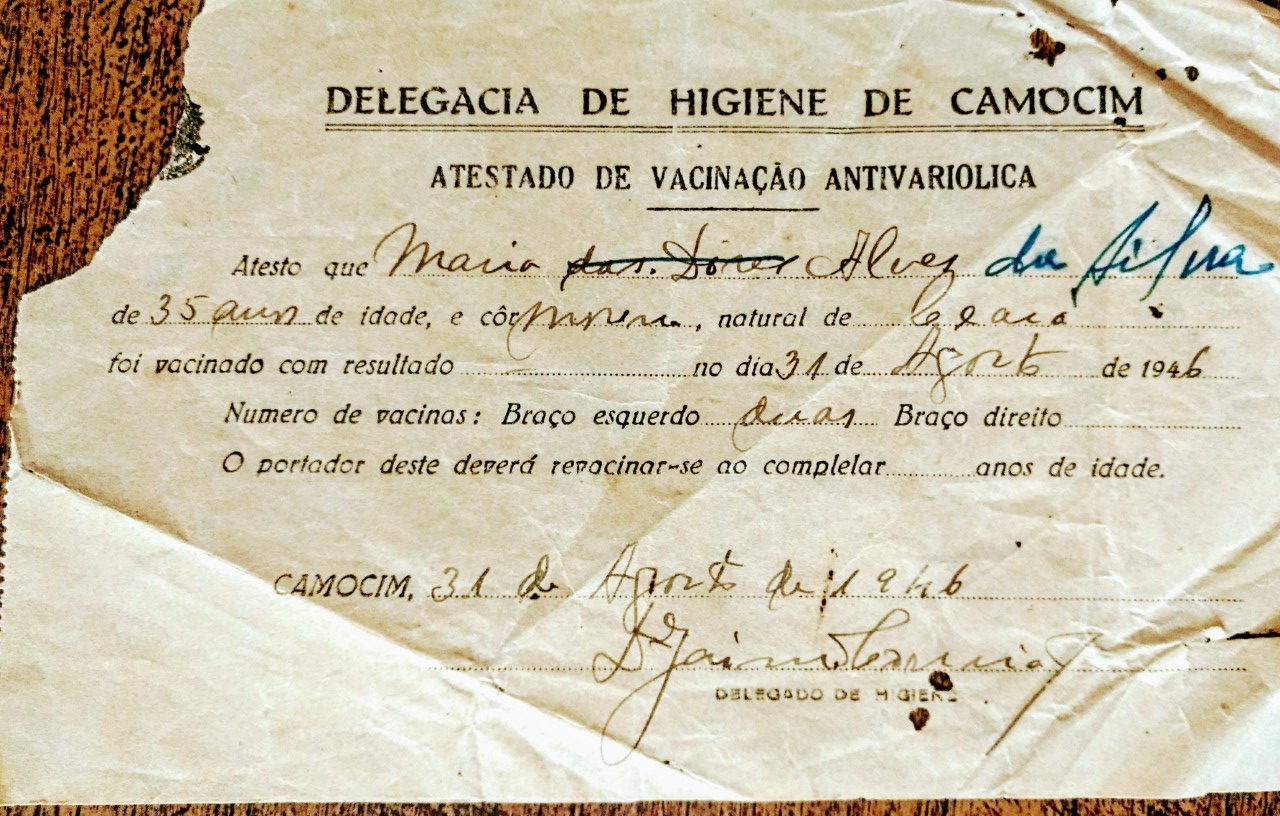 DELEGACIA DE HIGIENE DE CAMOCIM
ATESTADO DE VACINAÇÃO ANTIVARIOLICA
Atesto que Maria das Dores Alves da Silva
de 35 anos de idade, e côr morena, natural de Ceará
foi vacinado com resultado no dia 31 de Agosto de 1946
Numero de vacinas: Braço esquerdo duas Braço direito
O portador deste deverá revacinar-se ao complelar anos de idade.
CAMOCIM, 31 de Agosto de 1946
Dr Jaime Correia
DELEGADO DE HIGIENE